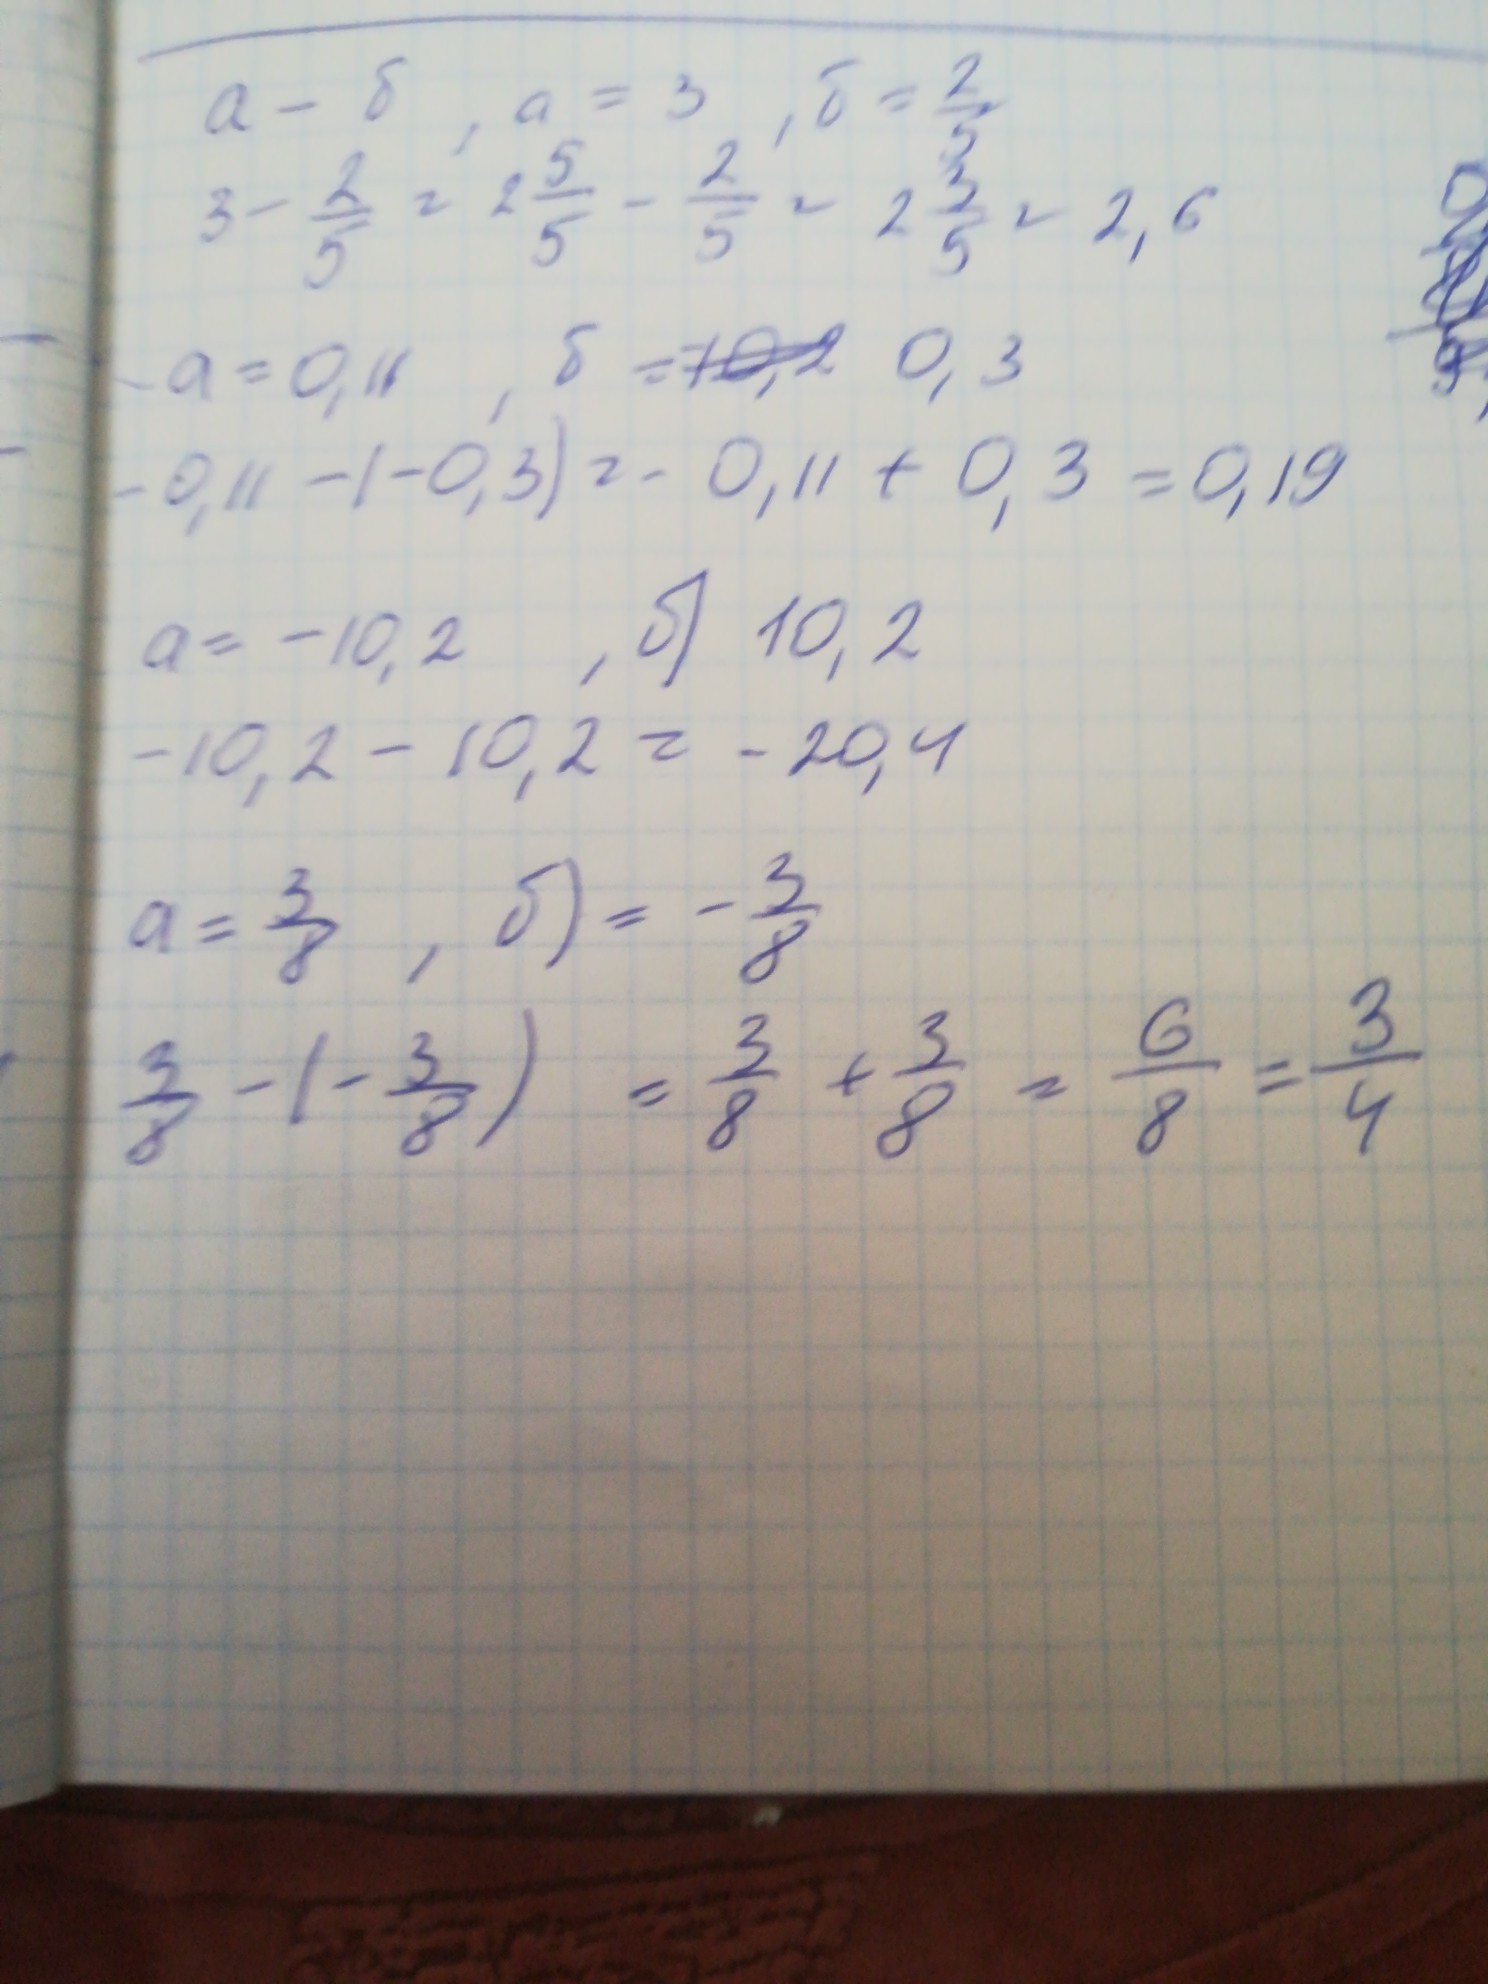 а - б , а = 3 , б = 2/5
3 - 2/5 = 2 5/5 - 2/5 = 2 3/5 = 2,6
- а = 0,11 , б = 0,3
- 0,11 - (-0,3) = - 0,11 + 0,3 = 0,19
а = -10,2 , б) 10,2
-10,2 - 10,2 = -20,4
а = 3/8 , б) = - 3/8
3/8 - (- 3/8) = 3/8 + 3/8 = 6/8 = 3/4